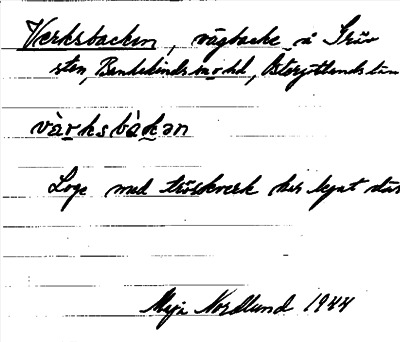 Verksbacken, vägbacke å Gräv
sten, Bankekinds md, Östergötlands län
và̱rksbàḵən
Loge med tröskverk har legat där
Maja Nordlund 1944